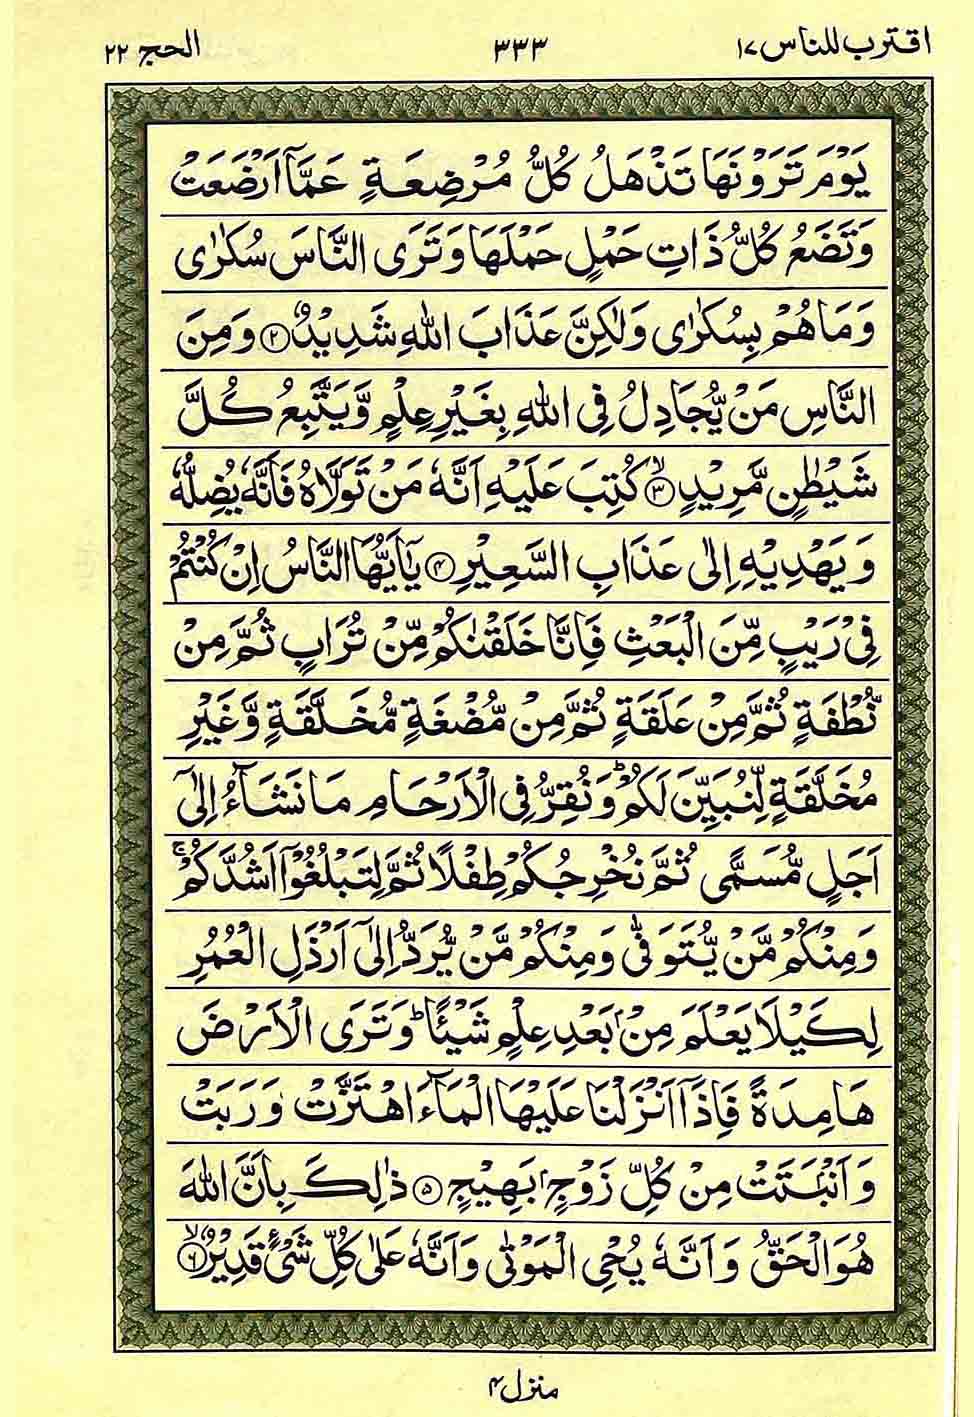 اقترب للناس ۱۷
۳۳۳
الحج ۲۲
يَوْمَ تَرَوْنَهَا تَذْهَلُ كُلُّ مُرْضِعَةٍ عَمَّاۤ اَرْضَعَتْ
وَتَضَعُ كُلُّ ذَاتِ حَمْلٍ حَمْلَهَا وَتَرَى النَّاسَ سُكٰرٰى
وَمَا هُمْ بِسُكٰرٰى وَلٰكِنَّ عَذَابَ اللّٰهِ شَدِيْدٌ ۲ وَمِنَ
النَّاسِ مَنْ يُّجَادِلُ فِى اللّٰهِ بِغَيْرِ عِلْمٍ وَّيَتَّبِعُ كُلَّ
شَيْطٰنٍ مَّرِيْدٍۙ ۳ كُتِبَ عَلَيْهِ اَنَّهٗ مَنْ تَوَلَّاهُ فَاَنَّهٗ يُضِلُّهٗ
وَيَهْدِيْهِ اِلٰى عَذَابِ السَّعِيْرِ ۴ يٰۤاَيُّهَا النَّاسُ اِنْ كُنْتُمْ
فِىْ رَيْبٍ مِّنَ الْبَعْثِ فَاِنَّا خَلَقْنٰكُمْ مِّنْ تُرَابٍ ثُمَّ مِنْ
نُّطْفَةٍ ثُمَّ مِنْ عَلَقَةٍ ثُمَّ مِنْ مُّضْغَةٍ مُّخَلَّقَةٍ وَّغَيْرِ
مُخَلَّقَةٍ لِّنُبَيِّنَ لَكُمْؕ وَنُقِرُّ فِى الْاَرْحَامِ مَا نَشَآءُ اِلٰۤى
اَجَلٍ مُّسَمًّى ثُمَّ نُخْرِجُكُمْ طِفْلًا ثُمَّ لِتَبْلُغُوْۤا اَشُدَّكُمْۚ
وَمِنْكُمْ مَّنْ يُّتَوَفّٰى وَمِنْكُمْ مَّنْ يُّرَدُّ اِلٰۤى اَرْذَلِ الْعُمُرِ
لِكَيْلَا يَعْلَمَ مِنْۢ بَعْدِ عِلْمٍ شَيْـًٔاؕ وَتَرَى الْاَرْضَ
هَامِدَةً فَاِذَاۤ اَنْزَلْنَا عَلَيْهَا الْمَآءَ اهْتَزَّتْ وَرَبَتْ
وَاَنْۢبَتَتْ مِنْ كُلِّ زَوْجٍۢ بَهِيْجٍ ۵ ذٰلِكَ بِاَنَّ اللّٰهَ
هُوَ الْحَقُّ وَاَنَّهٗ يُحْىِ الْمَوْتٰى وَاَنَّهٗ عَلٰى كُلِّ شَىْءٍ قَدِيْرٌۙ ۶
منزل ۴